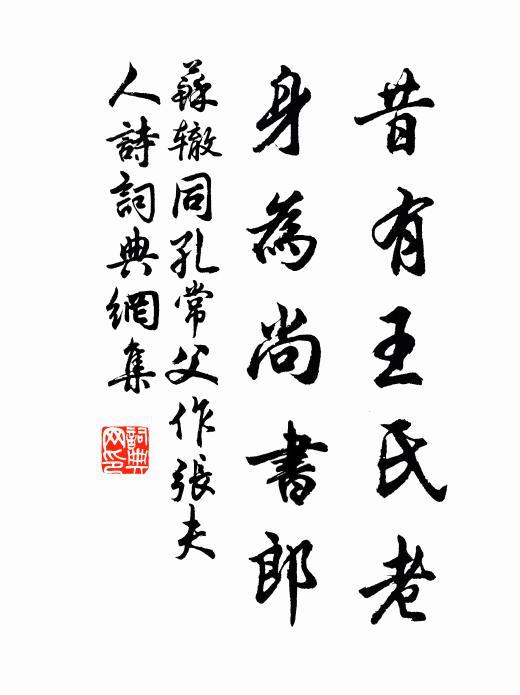 昔有王氏老
身為尚書郎
蘇辙同孔常父作張夫
人詩詞典網集
詞典
网印